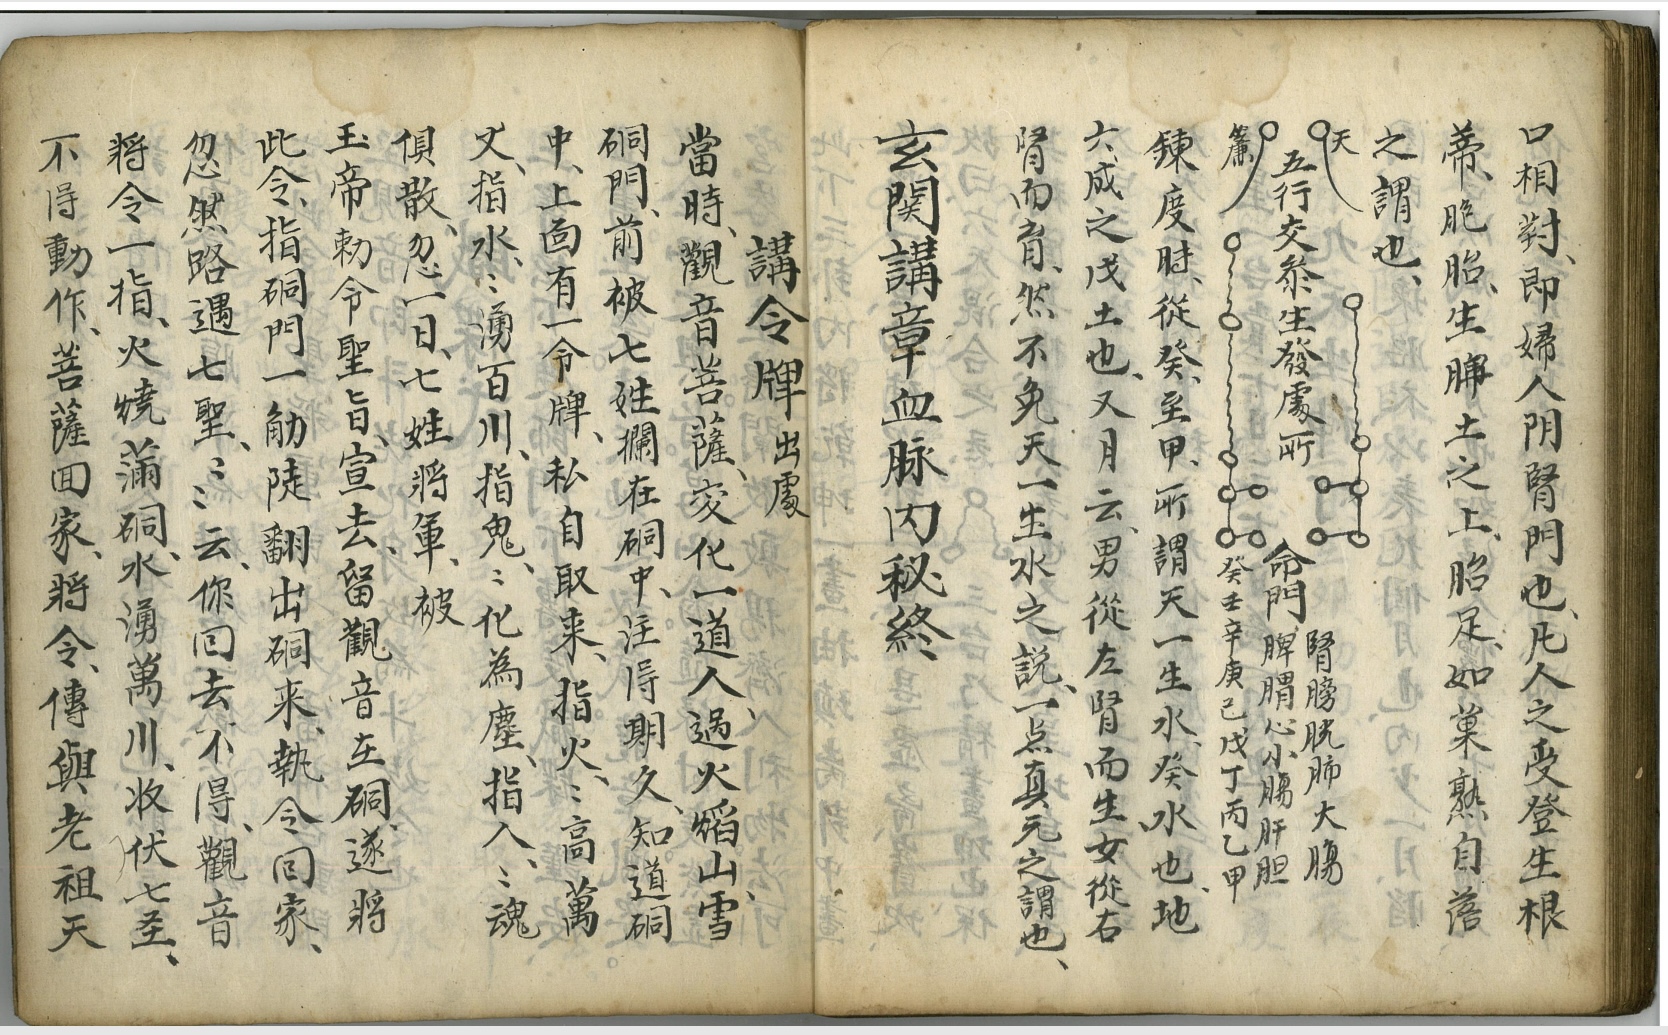 口相對、即婦人阴腎門也、凡人之受登生根
蒂、胞胎、生脾土之上、胎足、如菓熟自落
之謂也、
天
五行交叅生發處所
簾
命門
腎膀胱肺大腸
脾胃心小腸肝胆
癸壬辛庚己戊丁丙乙甲
鍊度時、從癸、至甲、所謂天一生水、癸水也、地
六成之戊土也、又月云、男從左腎而生女從右
腎而育、然不免天一生水之説、一点真元之謂也、
玄関講章血脉内秘終、
講令牌出處
當時、觀音菩薩、交化一道人、過火熖山、雪
硐門、前被七姓攔在硐中、注得期久、知道硐
中、上面有一令牌、私自取来、指火、〻高萬
丈、指水、〻湧百川、指鬼、〻化為塵、指人、〻魂
俱散、忽一日、七姓將軍、被
玉帝勅令聖旨、宣去、留觀音在硐、遂將
此令、指硐門一觔陡翻出硐来、執令回家、
忽然路遇七聖、〻〻云、你回去不得、觀音
將令一指、火燒滿硐、水湧萬川、收伏七圣、
不得動作、菩薩回家、將令、傳與老祖天